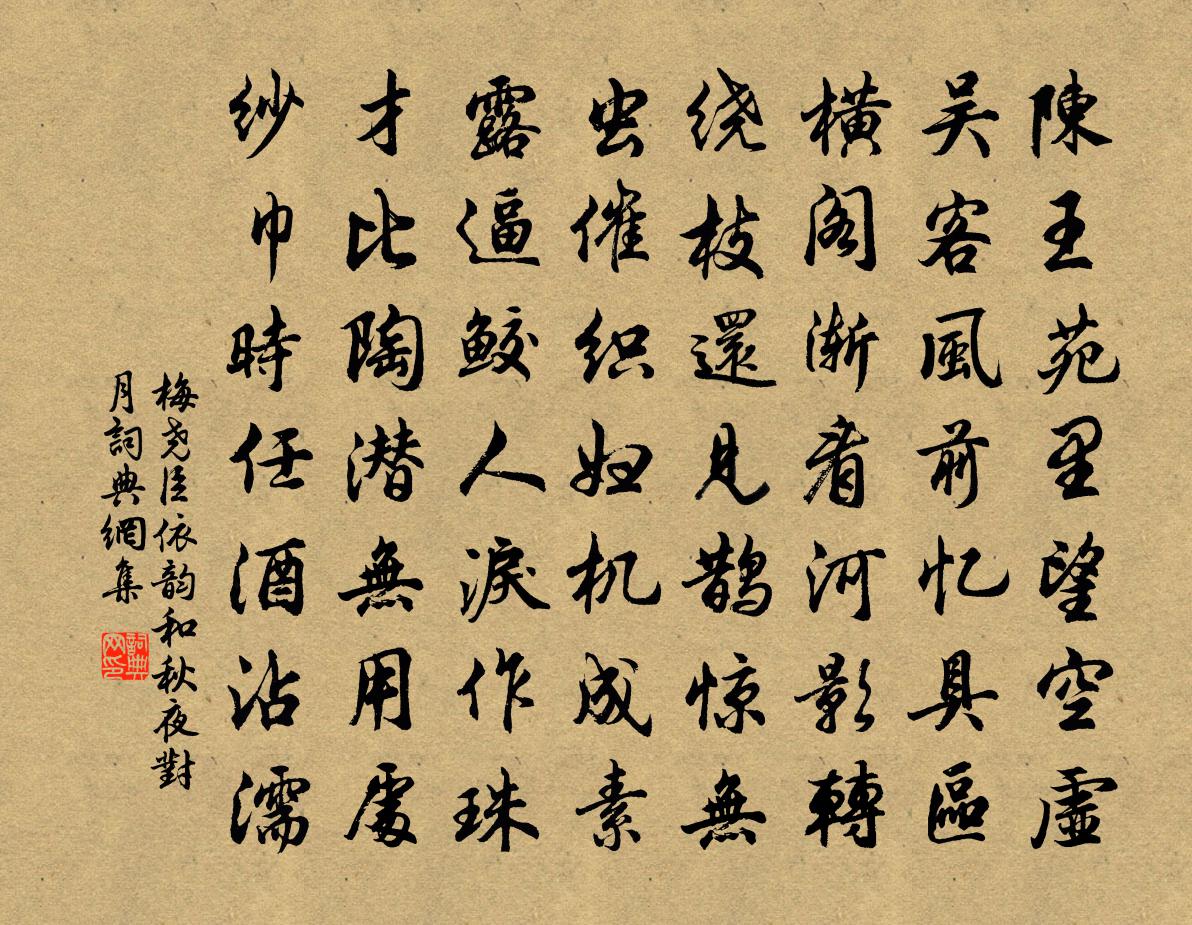 陳王苑里望空虛
吴客風前忆具區
橫阁渐看河影轉
绕枝還見鹊惊無
虫催织妇机成素
露逼鲛人淚作珠
才比陶潜無用處
纱巾時任酒沾濡
梅尧臣依韵和秋夜對
月詞典網集
詞典
网印